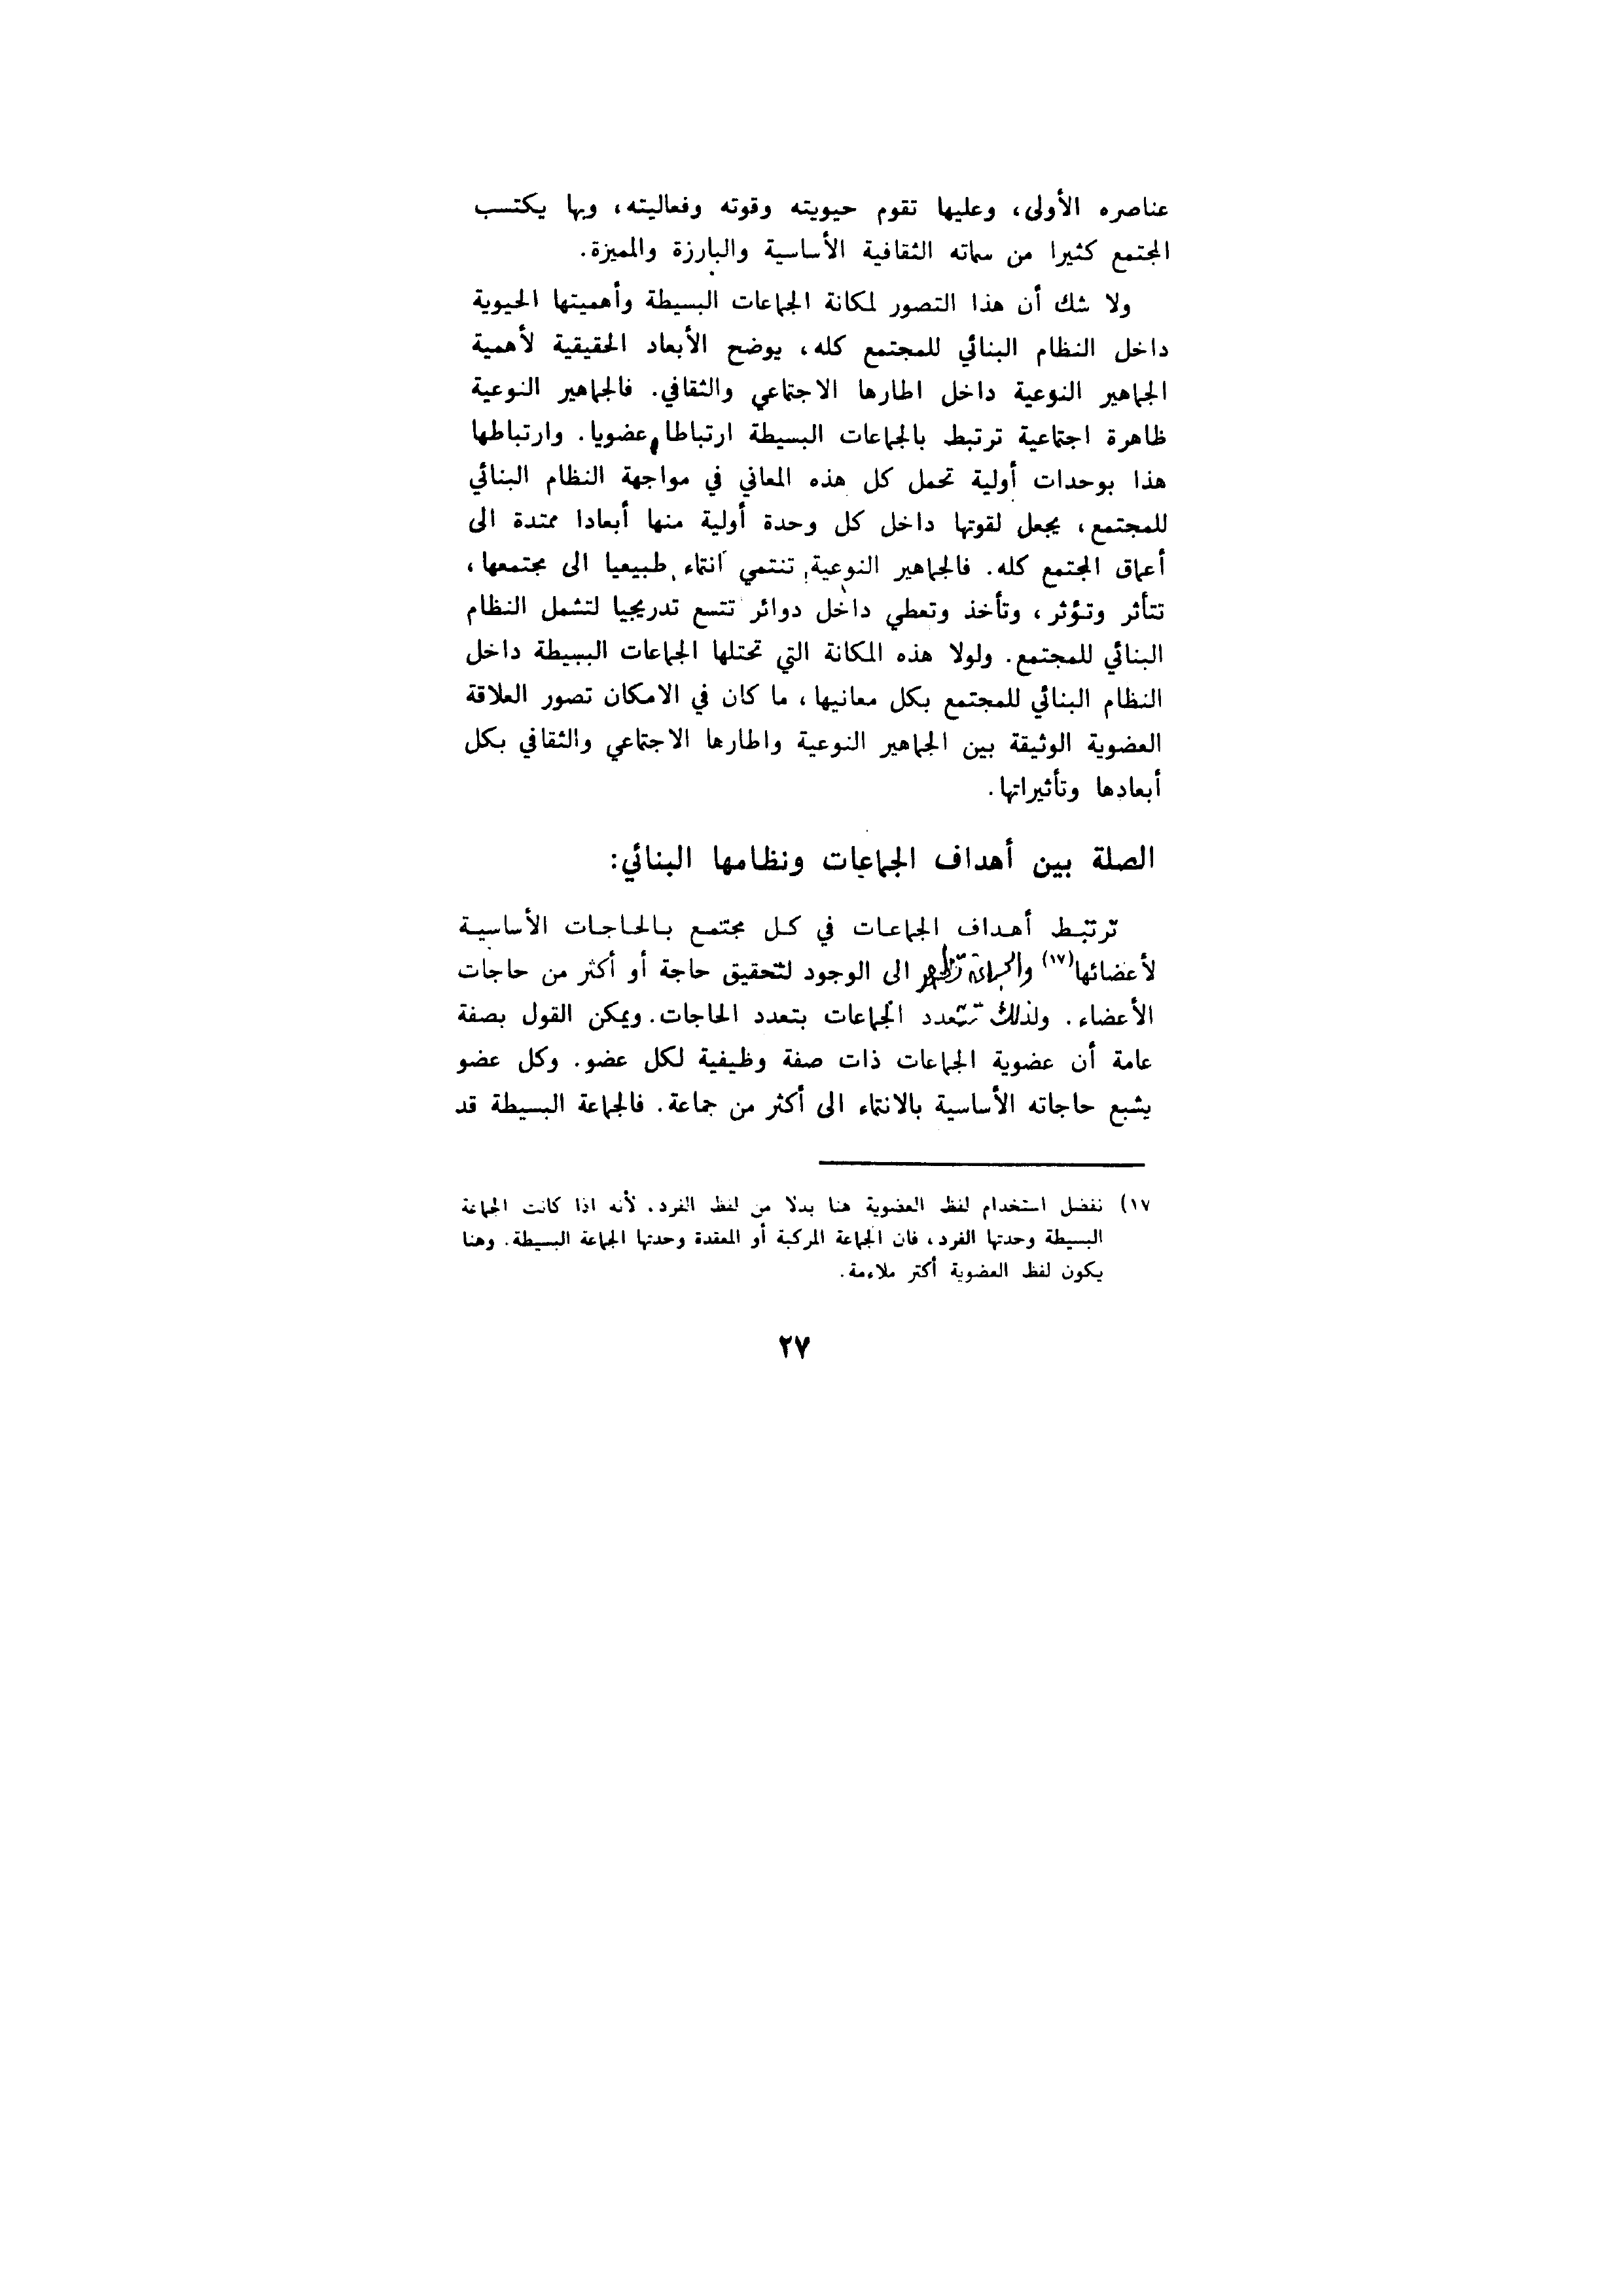 عناصره الأولى، وعليها تقوم حيويته وقوته وفعاليته، وبها يكتسب
المجتمع كثيرا من سماته الثقافية الأساسية والبارزة والمميزة.
ولا شك أن هذا التصور لمكانة الجماعات البسيطة وأهميتها الحيوية
داخل النظام البنائي للمجتمع كله، يوضح الأبعاد الحقيقية لأهمية
الجماهير النوعية داخل اطارها الاجتماعي والثقافي. فالجماهير النوعية
ظاهرة اجتماعية ترتبط بالجماعات البسيطة ارتباطا عضويا. وارتباطها
هذا بوحدات أولية تحمل كل هذه المعاني في مواجهة النظام البنائي
للمجتمع، يجعل لقوتها داخل كل وحدة أولية منها أبعادا ممتدة الى
أعماق المجتمع كله. فالجماهير النوعية تنتمي انتماء طبيعيا الى مجتمعها،
تتأثر وتؤثر، وتأخذ وتعطي داخل دوائر تتسع تدريجيا لتشمل النظام
البنائي للمجتمع. ولولا هذه المكانة التي تحتلها الجماعات البسيطة داخل
النظام البنائي للمجتمع بكل معانيها، ما كان في الامكان تصور العلاقة
العضوية الوثيقة بين الجماهير النوعية واطارها الاجتماعي والثقافي بكل
أبعادها وتأثيراتها.
الصلة بين أهداف الجماعات ونظامها البنائي:
ترتبط أهداف الجماعات في كل مجتمع بالحاجات الأساسية
لأعضائها(١٧) والجماعة تظهر الى الوجود لتحقيق حاجة أو أكثر من حاجات
الأعضاء. ولذلك تتعدد الجماعات بتعدد الحاجات. ويمكن القول بصفة
عامة أن عضوية الجماعات ذات صفة وظيفية لكل عضو. وكل عضو
يشبع حاجاته الأساسية بالانتماء الى أكثر من جماعة. فالجماعة البسيطة قد
١٧) نفضل استخدام لفظ العضوية هنا بدلا من لفظ الفرد. لأنه اذا كانت الجماعة
البسيطة وحدتها الفرد، فان الجماعة المركبة أو المعقدة وحدتها الجماعة البسيطة. وهنا
يكون لفظ العضوية أكثر ملاءمة.
٢٧